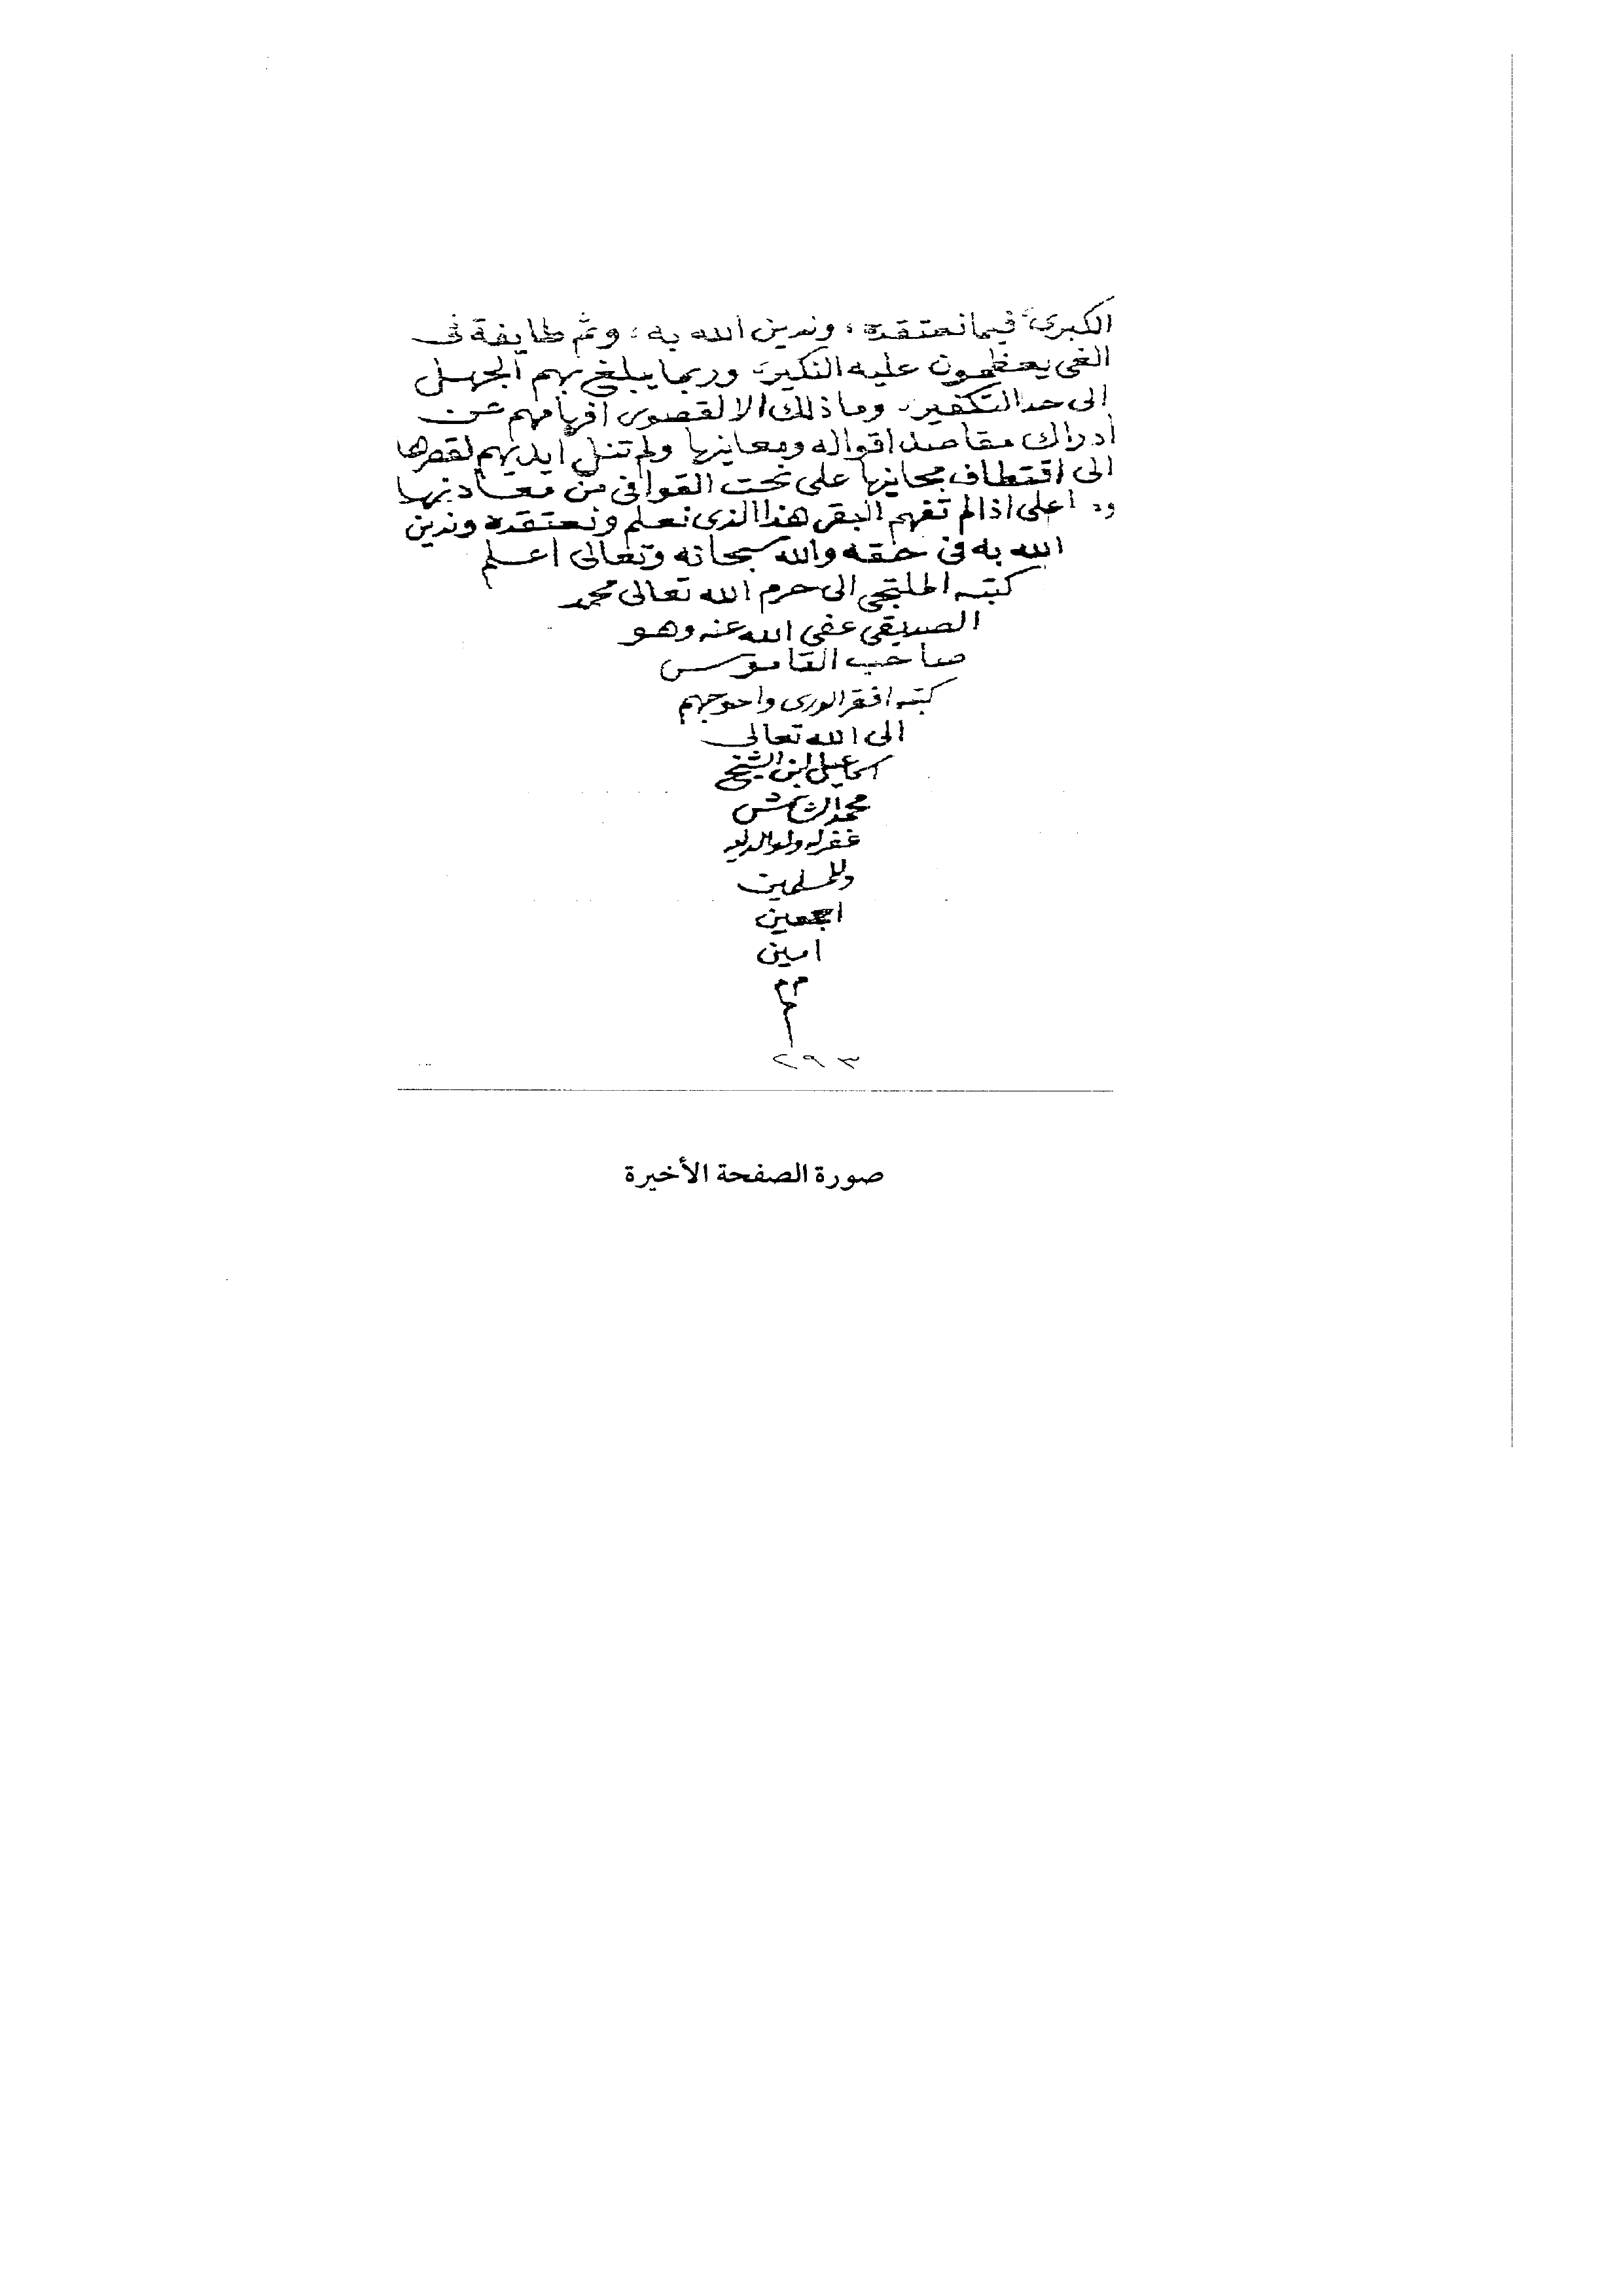 الكبرى فيما نعتقده، وندين الله به، وثم طايفة فى
الغى يعظمون عليه النكير وربما يبلغ بهم الجهل
الى حد التكفير، وما ذلك الا لقصور افهامهم عن
ادراك مقاصد اقواله ومعانيها ولم تنل ايديهم لقصرها
الى اقتطاف مجانيها على نحت القوافى من معادنها
وما على اذا لم تفهم البقر هذا الذى نعلم ونعتقده وندين
الله به فى حقه والله سبحانه وتعالى اعلم
كتبه الملتجى الى حرم الله تعالى محمد
الصديقى عفى الله عنه وهو
صاحب القاموس
كتبه افقر الورى واحوجهم
الى الله تعالى
اسماعيل ابن الشيخ
محمد
غفر له ولوالديه
وللمسلمين
اجمعين
امين
م م
٢٩٣
صورة الصفحة الأخيرة